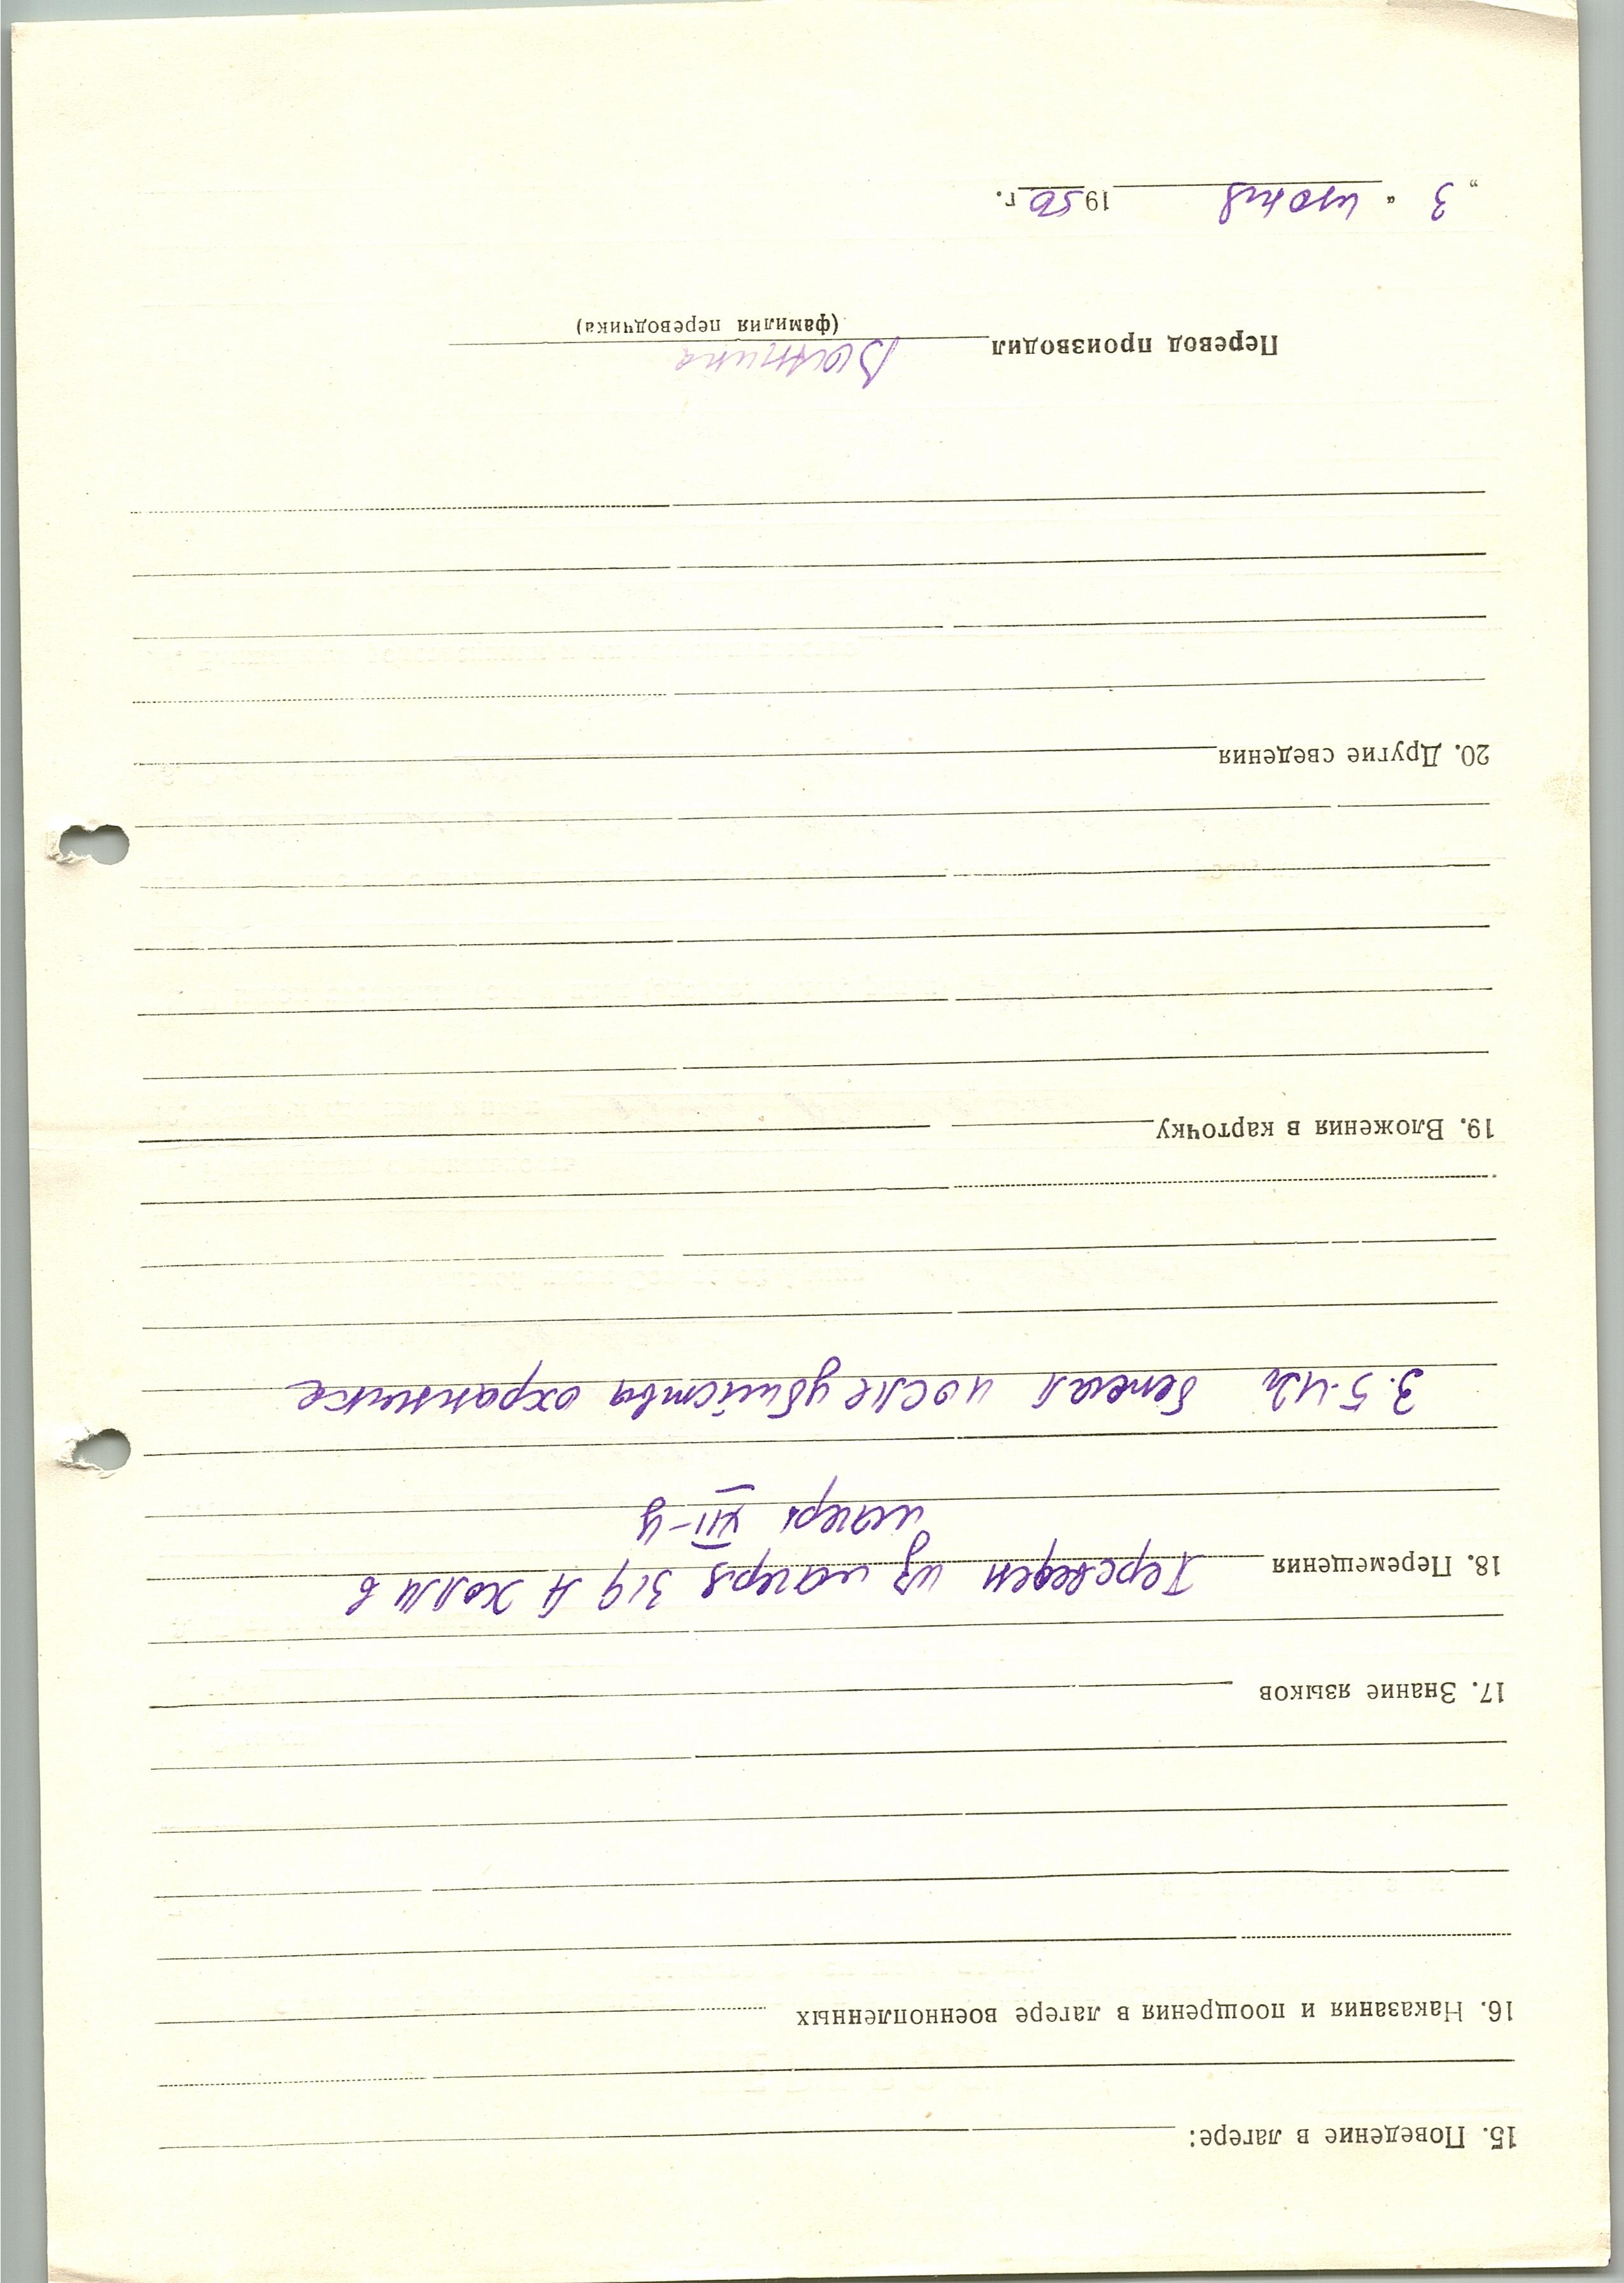 15. Поведение в лагере:
16. Наказания и поощрения в лагере военнопленных
17. Знание языков
18. Перемещения Переведен из лагеря 319 А Холм в
лагерь
3.5.42 бежал после убийства охранника
19. Вложения в карточку
20. Другие сведения
Перевод производил
(фамилия переводчика)
„ 3 “ июня 1950 г.